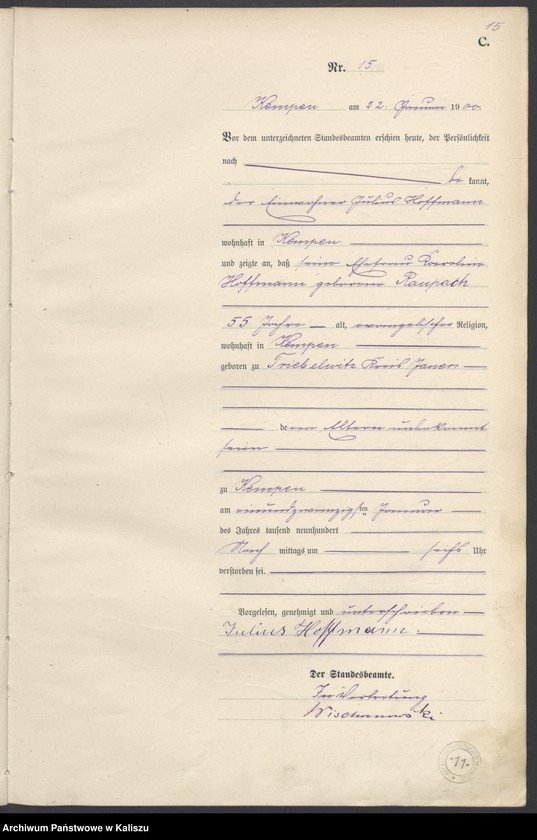 15
C.
Nr. 15
Kempen am 22. Januar 1900
Vor dem unterzeichneten Standesbeamten erschien heute, der Persönlichkeit
nach
be kannt,
der Einwohner Julius Hoffmann
wohnhaft in Kempen
und zeigte an, daß seine Ehefrau Karoline
Hoffmann geborene Raupach
55 Jahre alt, evangelischer Religion,
wohnhaft in Kempen
geboren zu Triebelwitz Kreis Jauer
deren Eltern unbekannt
seien
zu Kempen
am einundzwanzigsten Januar
des Jahres tausend neunhundert
Nach mittags um sechs Uhr
verstorben sei.
Vorgelesen, genehmigt und unterschrieben
Julius Hoffmann.
Der Standesbeamte.
In Vertretung
11
Archiwum Państwowe w Kaliszu